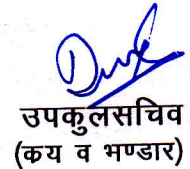 उपकुलसचिव
(कय व भण्डार)